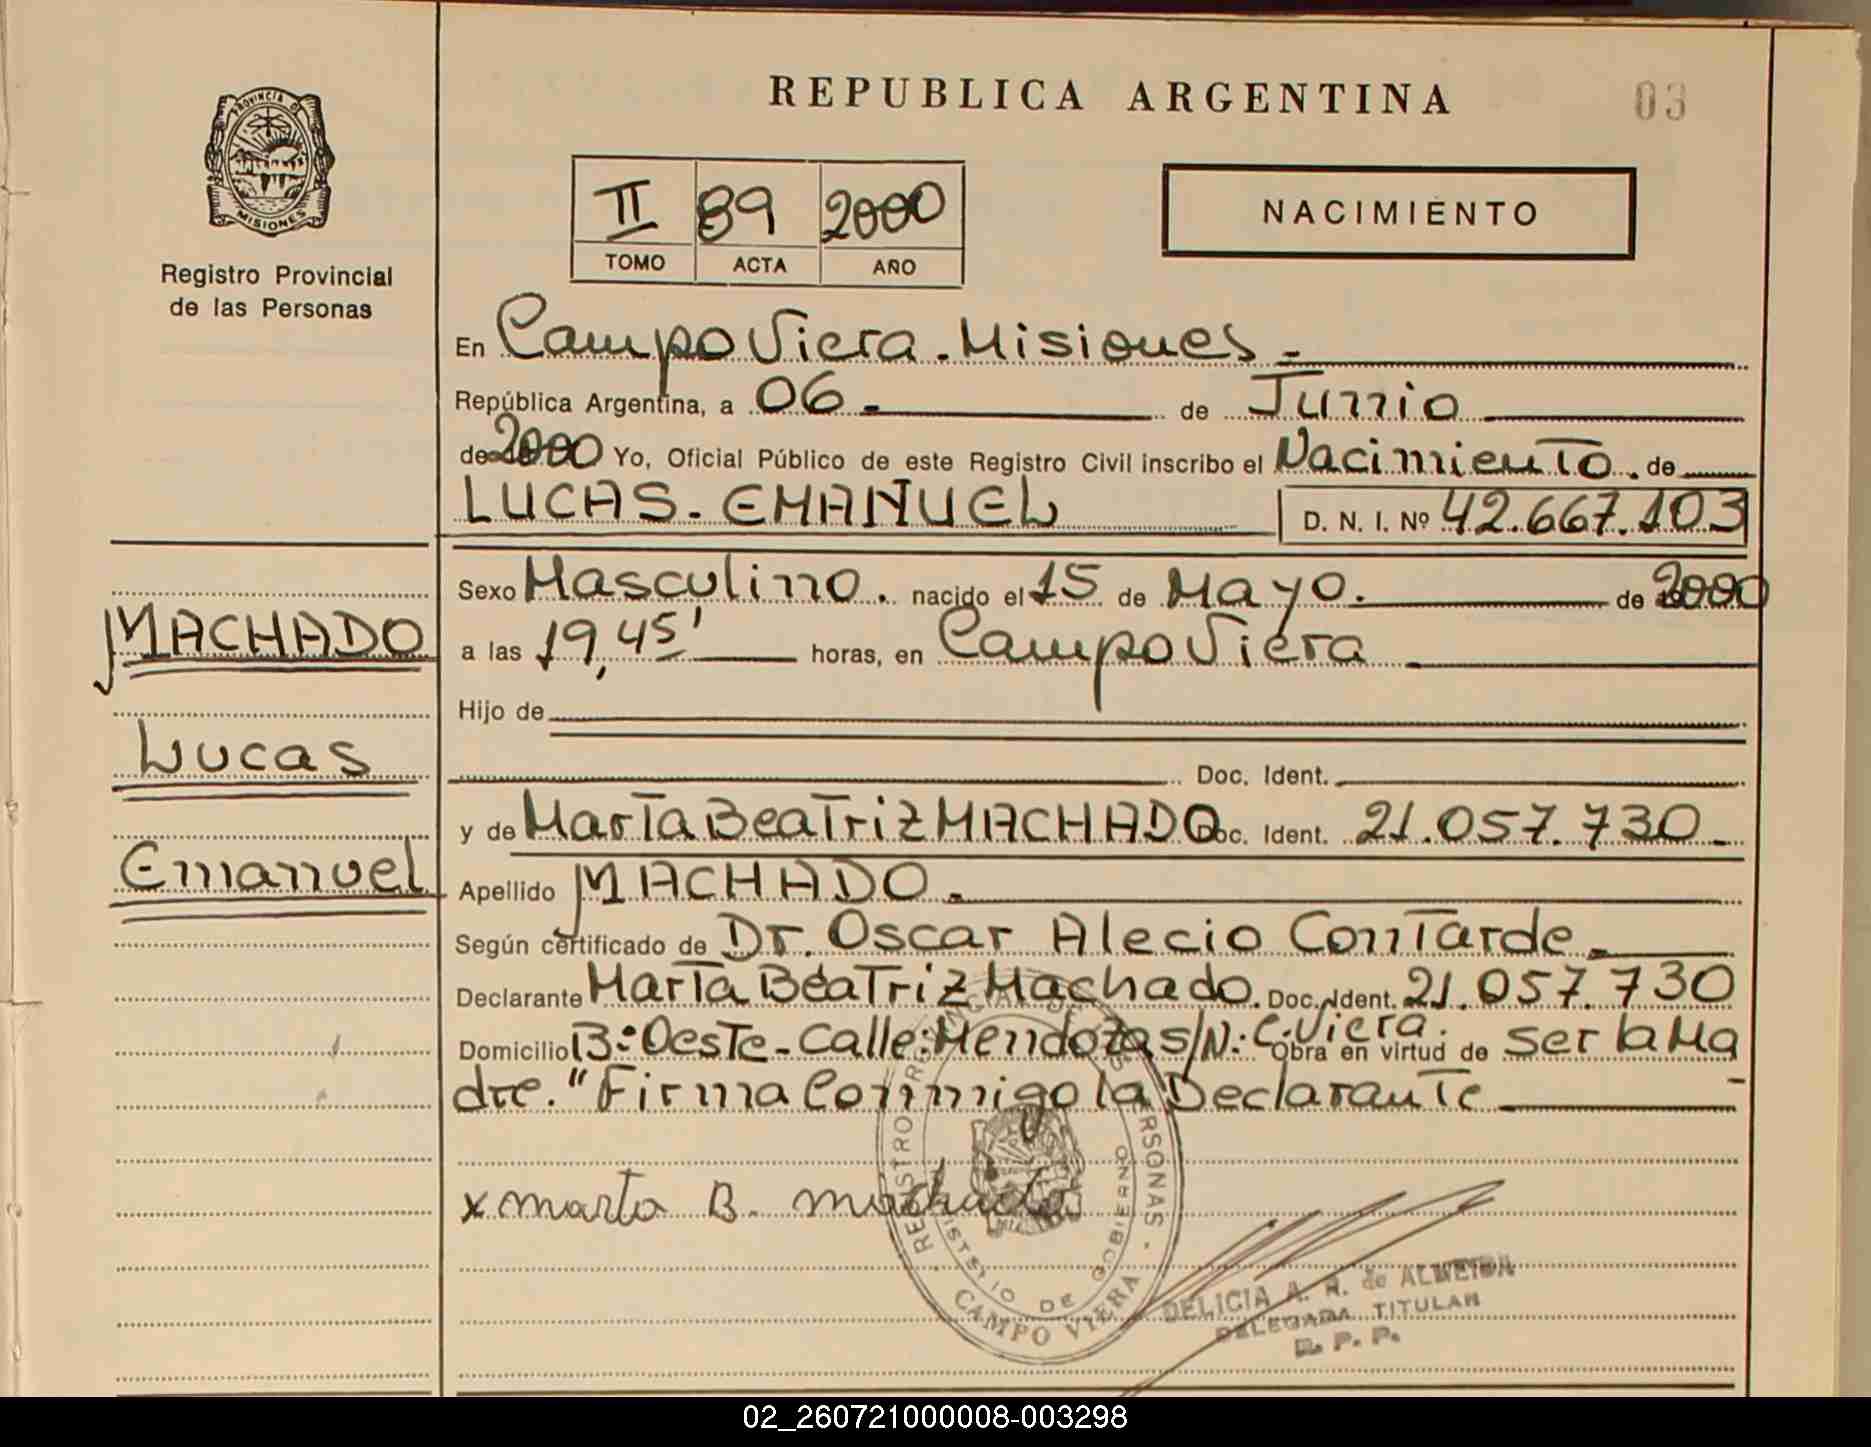 REPUBLICA ARGENTINA
03
PROVINCIA DE
MISIONES
Registro Provincial
de las Personas
II 89 2000
TOMO ACTA AÑO
NACIMIENTO
En Campo Viera - Misiones -
República Argentina, a 06 - de Junio
de 2000 Yo, Oficial Público de este Registro Civil inscribo el Nacimiento. de
LUCAS - EMANUEL D. N. I. Nº 42.667.103
Sexo Masculino. nacido el 15 de Mayo. de 2000
MACHADO
a las 19,45' horas, en Campo Viera
Hijo de
Lucas
Doc. Ident.
y de Marta Beatriz MACHADO Doc. Ident. 21.057.730 -
Emanuel
Apellido MACHADO -
Según certificado de Dr. Oscar Alecio Contarde -
Declarante Marta Beatriz Machado. Doc. Ident. 21.057.730
Domicilio Bº: Oeste - Calle: Mendoza S/N: C. Viera. Obra en virtud de ser la Ma
dre. "Firma Conmigo la Declarante -
x Marta B. Machado
REGISTRO PROVINCIAL DE LAS PERSONAS -
MINISTERIO DE GOBIERNO
CAMPO VIERA
DELICIA A. R. de ALMEIDA
DELEGADA TITULAR
R. P. P.
02_260721000008-003298